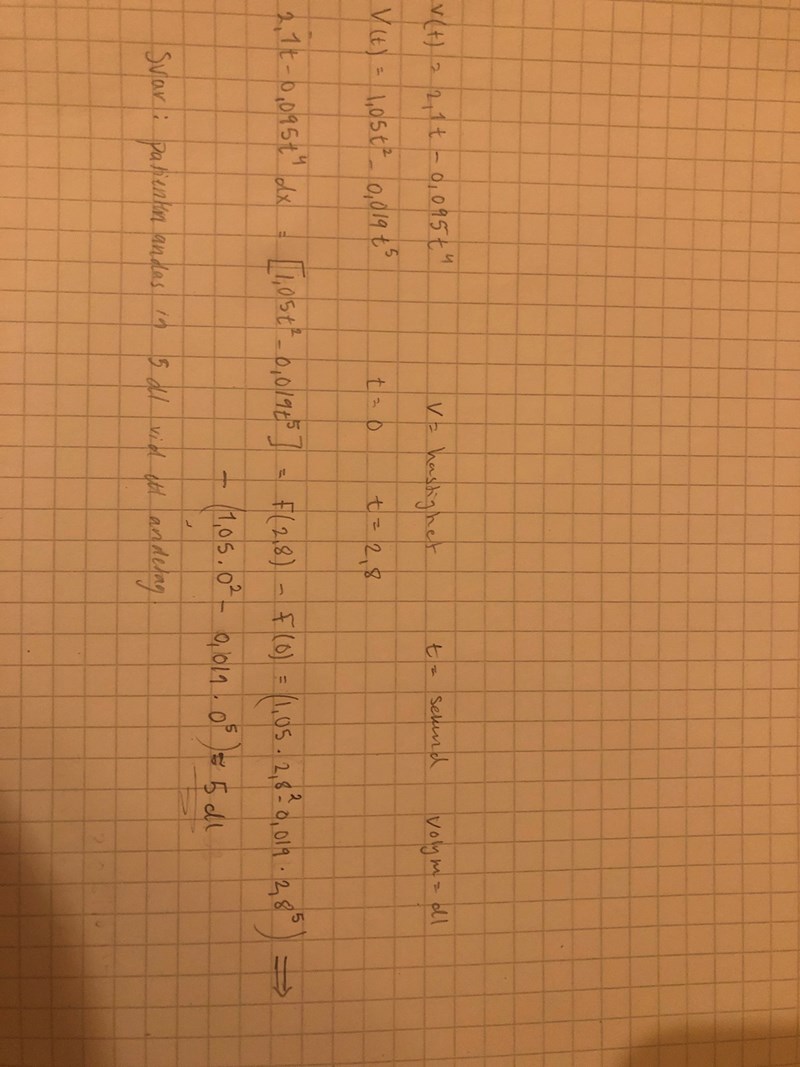 v(t) = 2,1t - 0,095t⁴ v = hastighet t = sekund volym = dl
V(t) = 1,05t² - 0,019t⁵ t = 0 t = 2,8
2,1t - 0,095t⁴ dx = [1,05t² - 0,019t⁵] = F(2,8) - F(0) = (1,05 · 2,8² - 0,019 · 2,8⁵) ⟹
- (1,05 · 0² - 0,019 · 0⁵) ≈ 5 dl
Svar: patienten andas in 5 dl vid ett andetag.